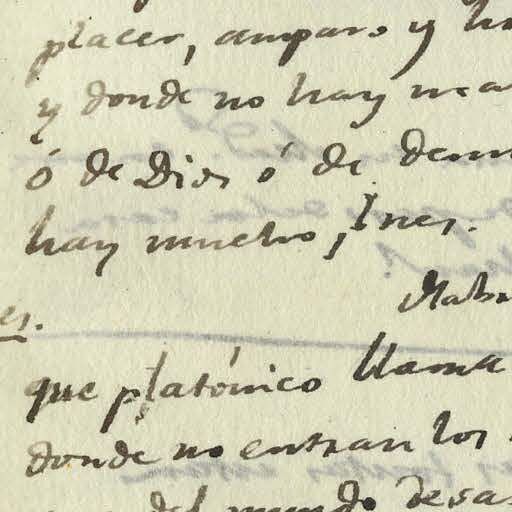 placer, amparo y
y donde no hay
ó de Dios ó de
hay mucho, Ines.
es.
que platónico llama
donde no entran los
del mundo